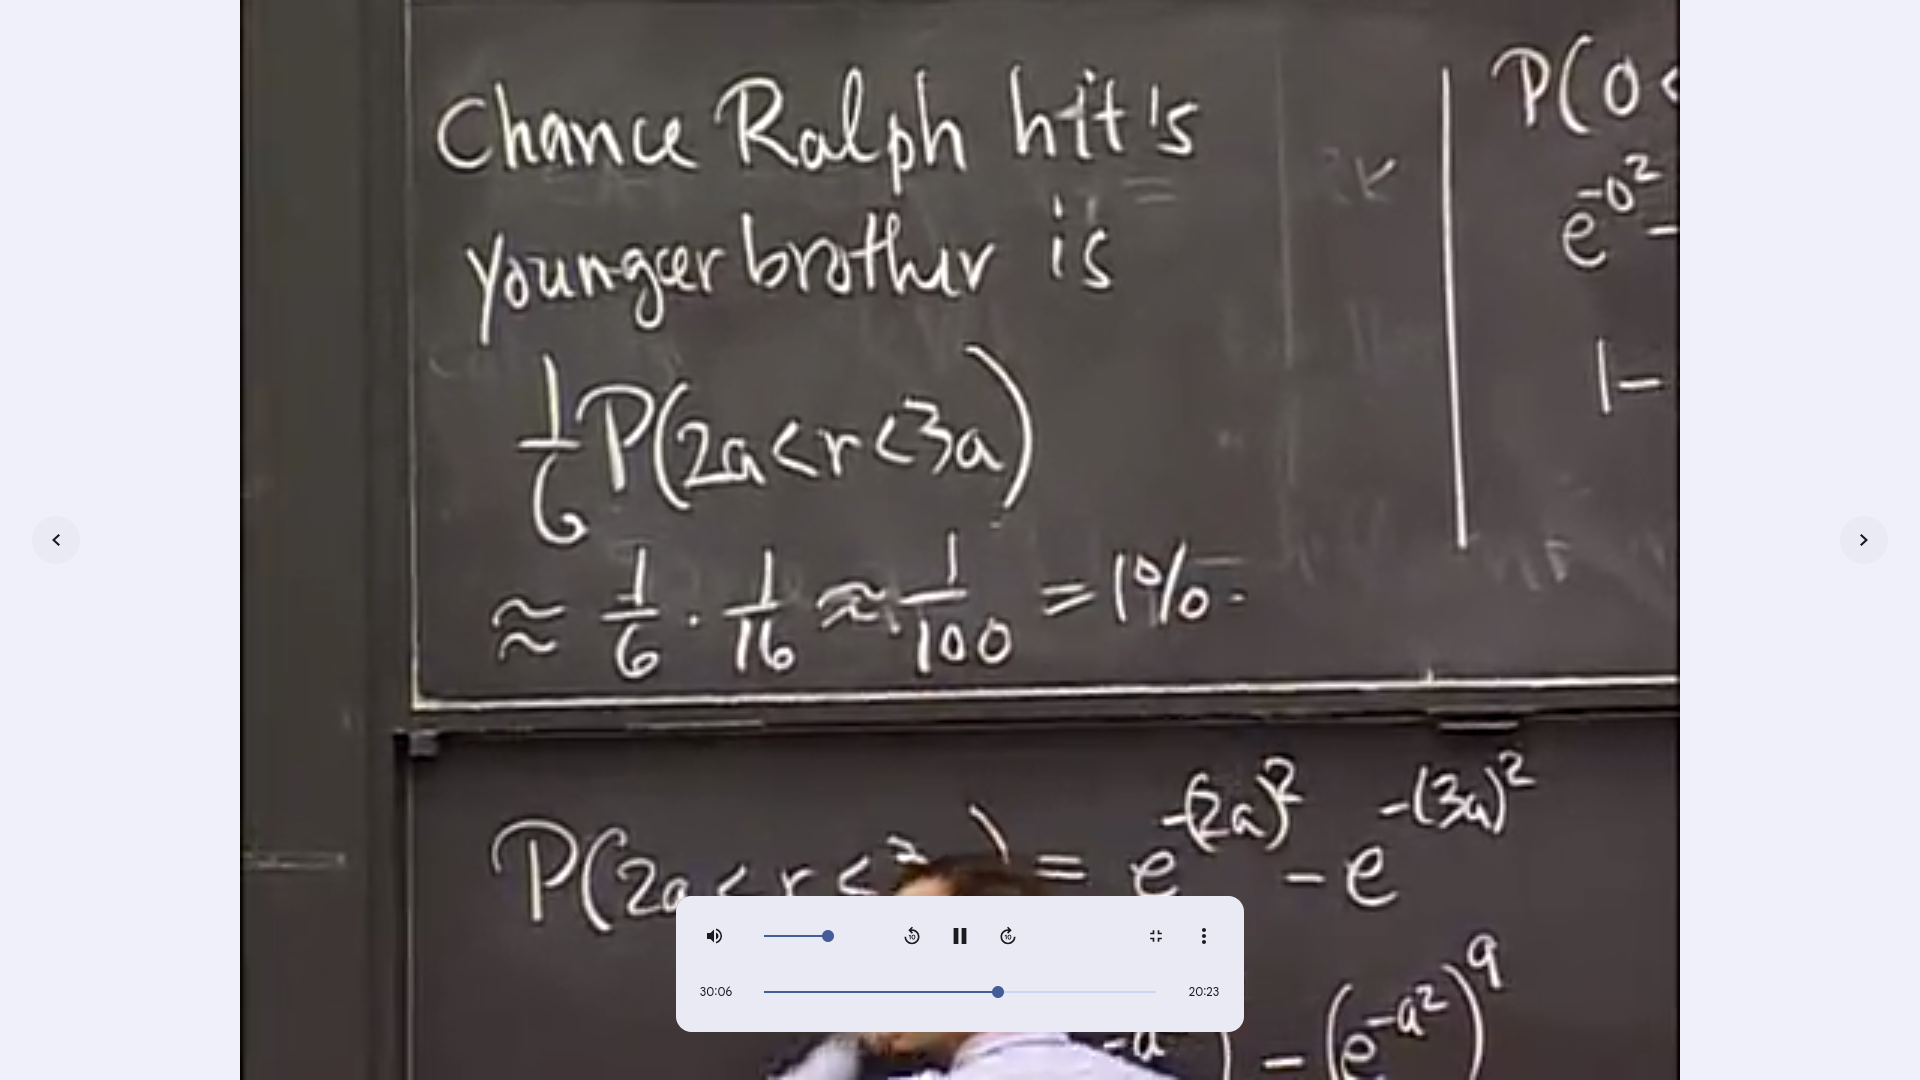 Chance Ralph hit's
younger brother is
1/6 P(2a < r < 3a)
≈ 1/6 · 1/16 ≈ 1/100 = 1%.
P(0 <
e^-0^2 -
1 -
P(2a < r < ) = e^-(2a)^2 - e^-(3a)^2
- (e^-a^2)^9
10
10
30:06
20:23